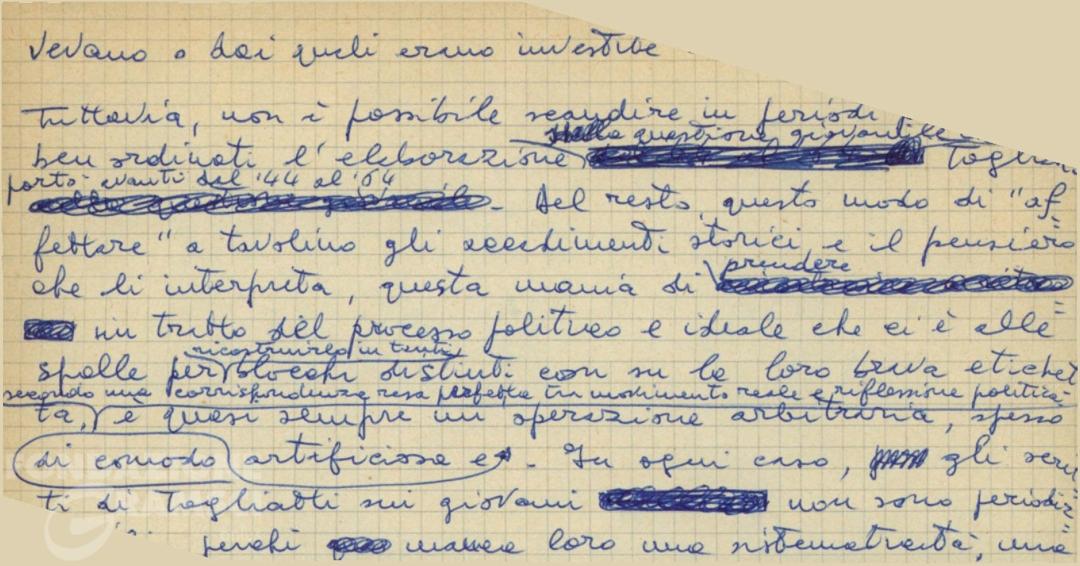 vevano o dai quali erano investite
Tuttavia, non è possibile scandire in periodi
sulla questione giovanile
ben ordinati l'elaborazione
portò avanti dal '44 al '64
Del resto, questo modo di "af
fettare" a tavolino gli accadimenti storici e il pensiero
prendere
che li interpreta, questa mania di
un tratto del processo politico e ideale che ci è alle
ricostruirlo in tanti
spalle per blocchi distinti con su la loro brava etichet
secondo una corrispondenza resa perfetta tra movimento reale e riflessione politica
ta, è quasi sempre un operazione arbitraria, spesso
di comodo artificiosa e. In ogni caso, gli scrit
ti di Togliatti sui giovani non sono periodiz
perché manca loro una sistematicità, una